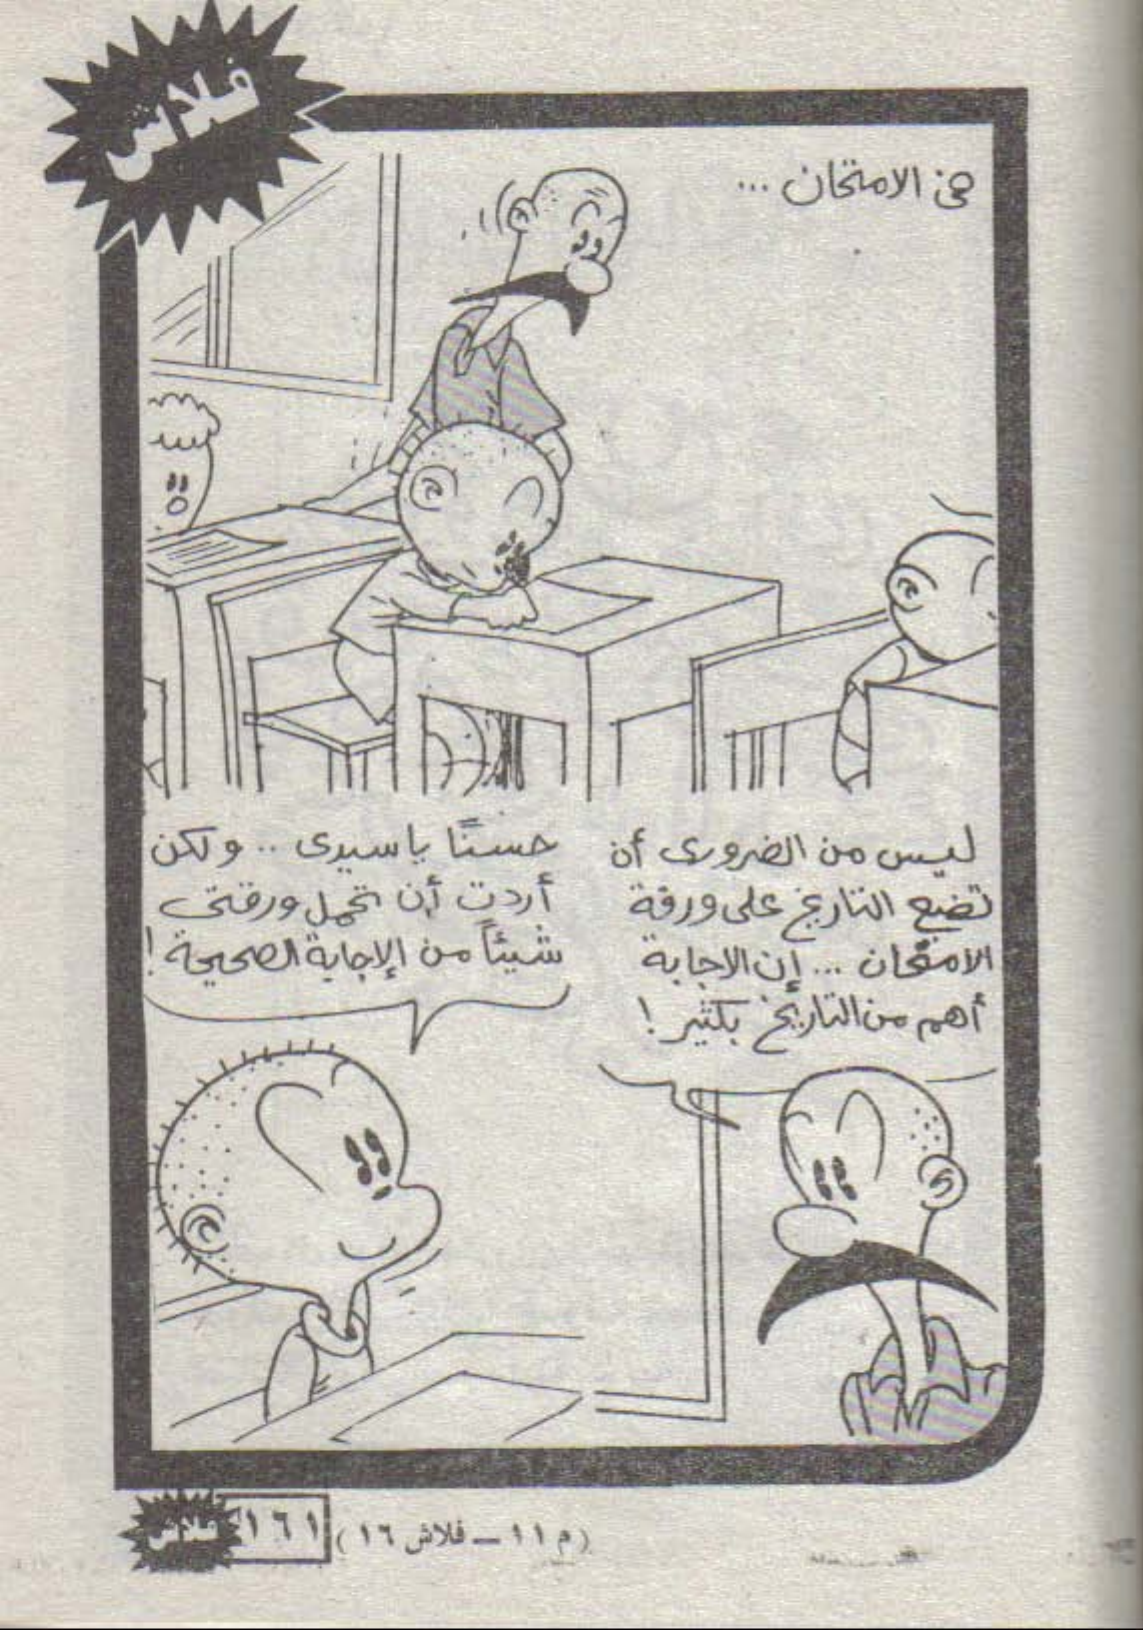 فلاش
فى الامتحان ...
ليس من الضرورى أن
تضع التاريخ على ورقة
الامتحان ... إن الاجابة
أهم من التاريخ بكثير !
حسنًا ياسيدى .. ولكن
أردت أن تحمل ورقتى
شيئاً من الإجابة الصحيحة !
(م ١١ ــ فلاش ١٦)
١٦١
فلاش